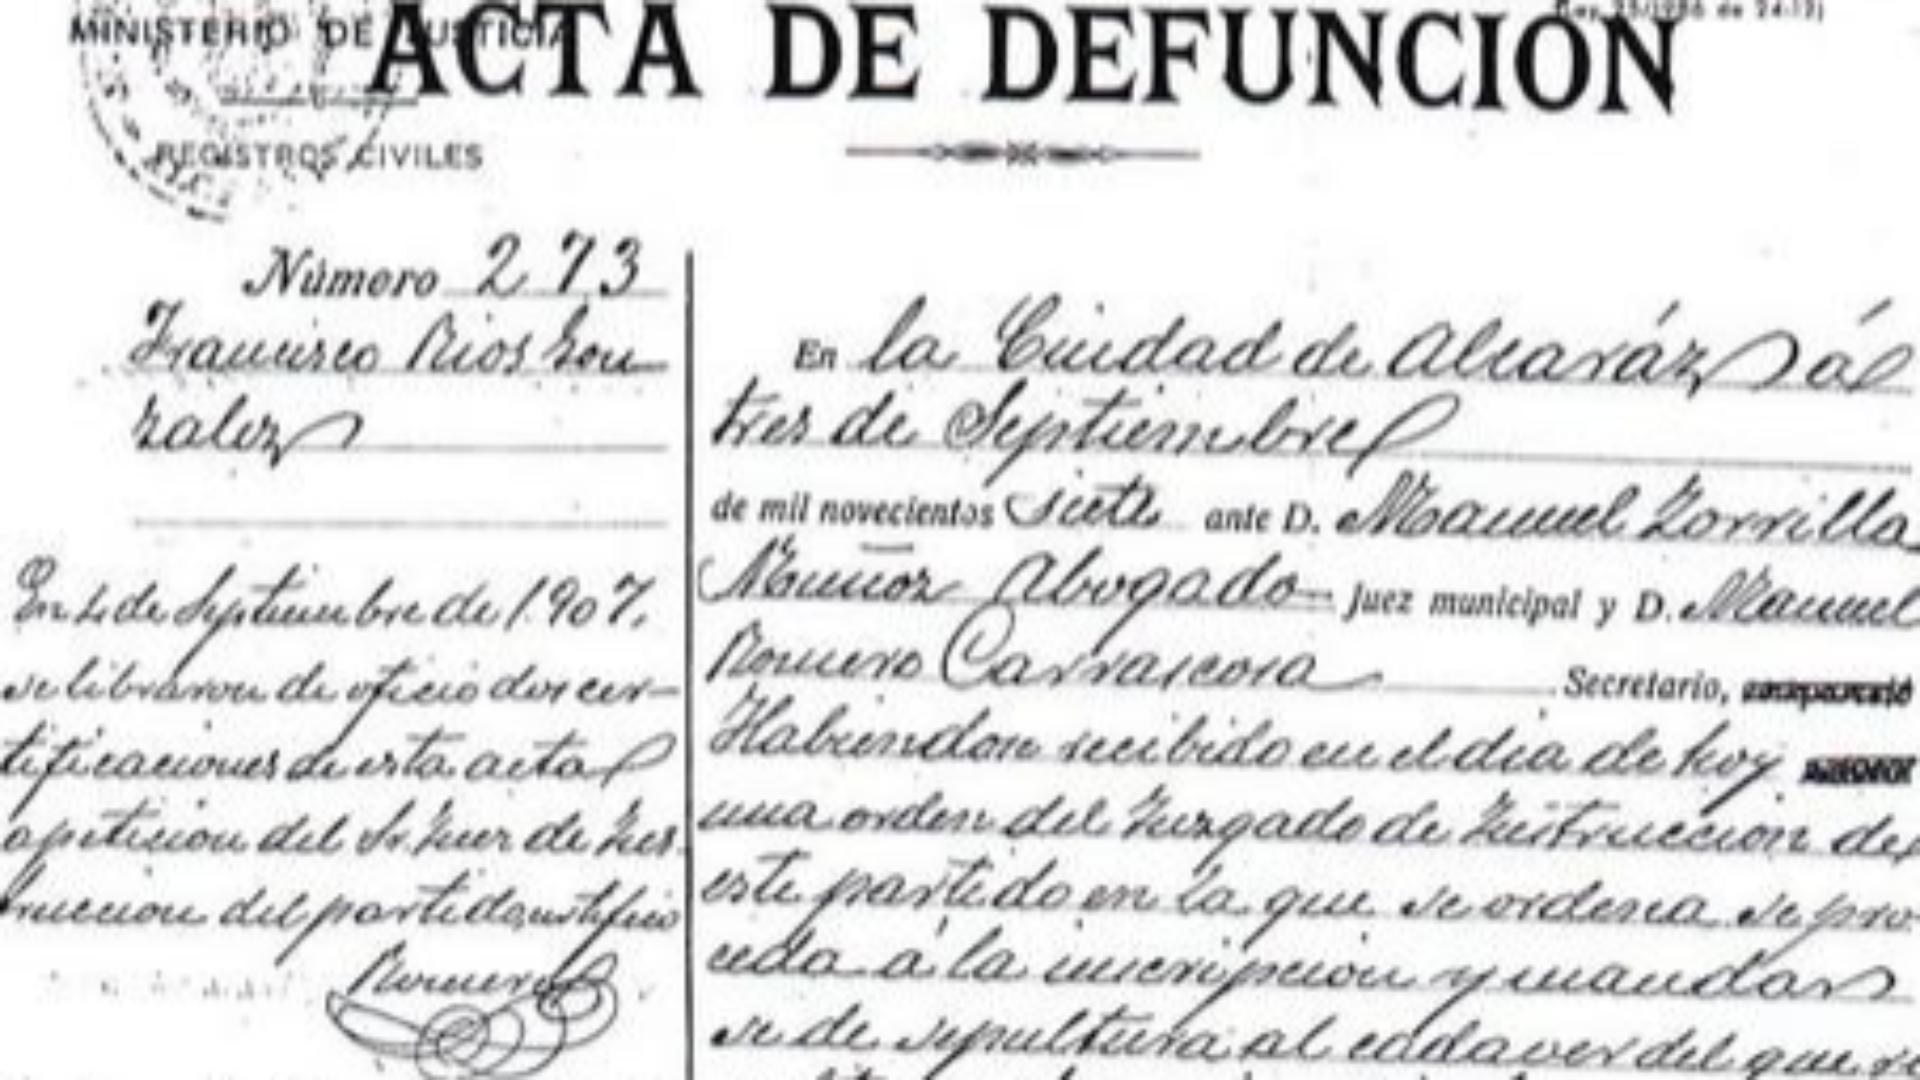 MINISTERIO DE JUSTICIA
ACTA DE DEFUNCIÓN
REGISTROS CIVILES
Número 273
Francisco Rios Gon
zalez
En 4 de Septiembre de 1907.
se libraron de oficio dos cer-
tificaciones de esta acta
a peticion del Sr. Juez de Ins-
truccion del partido, certifico
Romero
En la Ciudad de Alcaráz á
tres de Septiembre
de mil novecientos siete ante D. Manuel Zorrilla
Muñoz Abogado Juez municipal y D. Manuel
Romero Carrascosa Secretario, compareció
Habiendose recibido en el dia de hoy
una orden del Juzgado de Instruccion de
este partido en la que se ordena se pro
ceda á la inscripcion y mandar
se de sepultura al cadaver del que